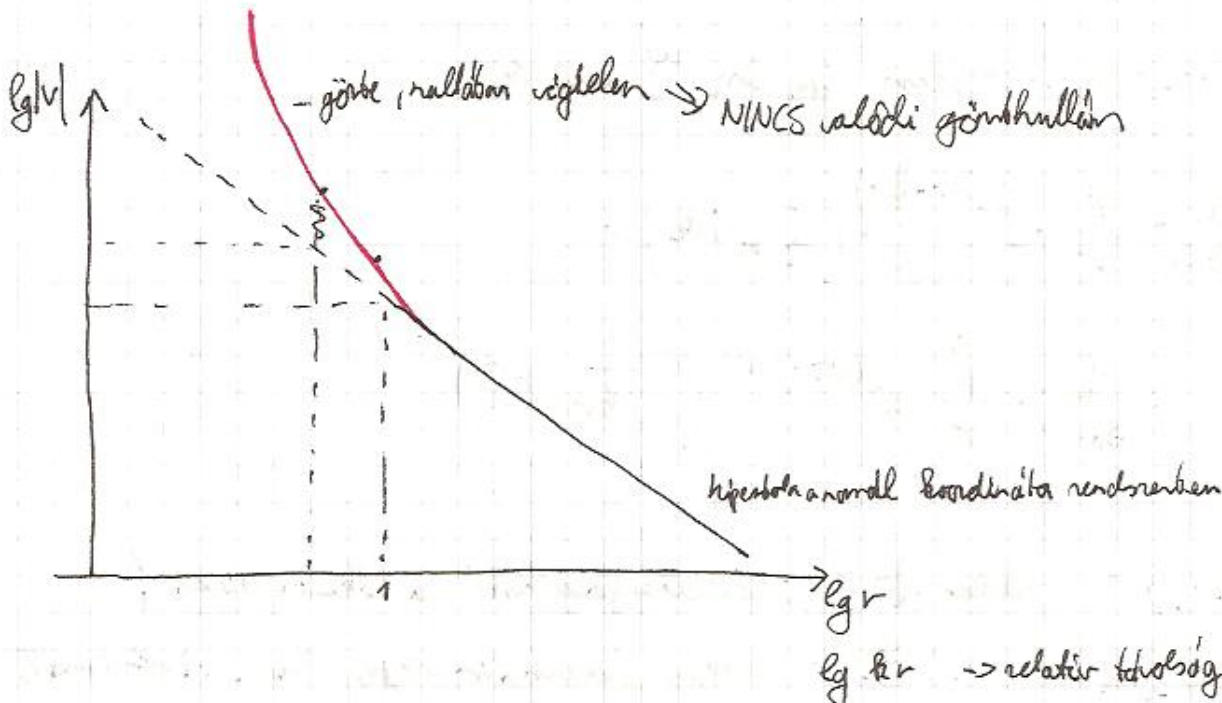 lg|v|
- görbe, nullában végtelen → NINCS valódi gömbhullám
hiperbola a normál koordináta rendszerben
1
lg r
lg kr → relatív távolság